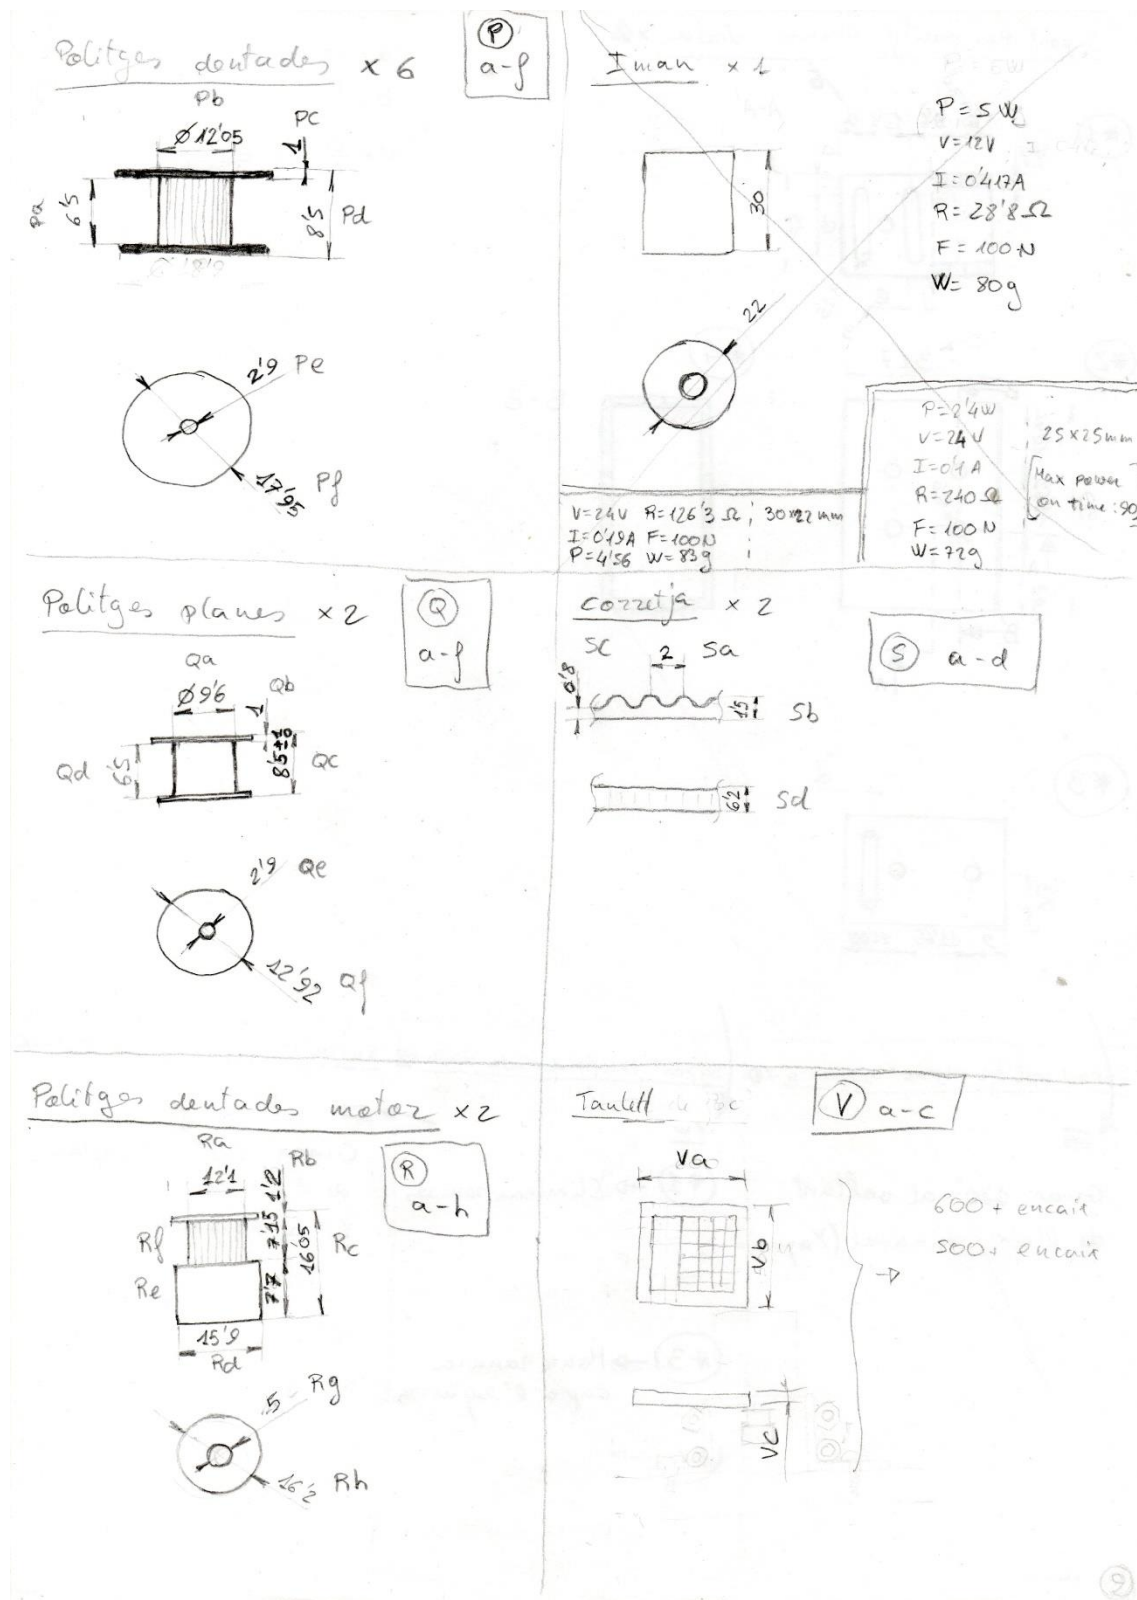 Politges dentades x 6
P
a-f
Pb
Ø12'05
Pc
1
Pa
6'5
8'5
Pd
2'9
Pe
17'95
Pf
Iman x 1
P = 5 W
V = 12V
I = 0'417A
R = 28'8 Ω
F = 100 N
W = 80g
30
22
P = 2'4W
V = 24V
25x25mm
I = 0'1 A
Max power
R = 240 Ω
on time: 90
F = 100 N
W = 72g
V=24V R=126'3 Ω ; 30x22 mm
I=0'19A F=100N
P=4'56 W=83g
Politges planes x 2
Q
a-f
Qa
Ø9'6
Qb
1
Qd
6'5
Qc
2'9
Qe
12'92
Qf
Corretja x 2
S
a-d
Sc
2
Sa
0'8
1'5
Sb
6'2
Sd
Politges dentades motor x2
R
a-h
Ra
12'1
Rb
1'2
Rf
7'15
16'05
Rc
Re
7'7
15'9
Rd
5
Rg
16'2
Rh
V
a-c
Va
Vb
Vc
600 + encaix
500 + encaix